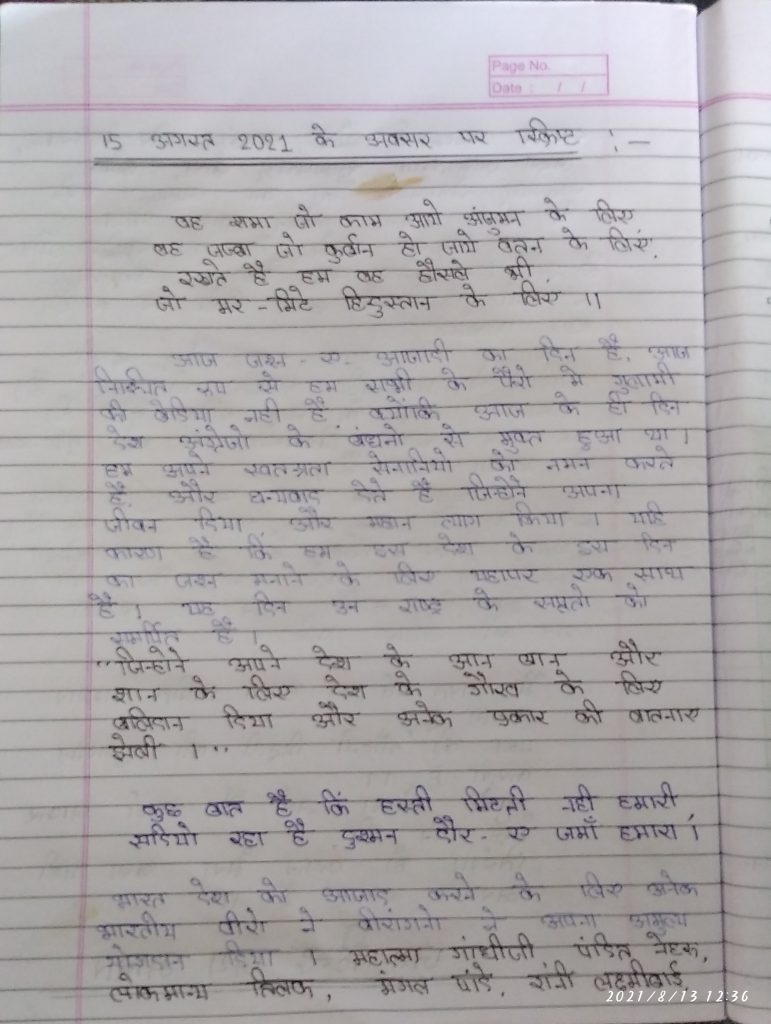 Page No.
Date : / /
15 अगस्त 2021 के अवसर पर स्क्रिप्ट :-
वह शमा जो काम आये अंजुमन के लिए
वह जज्बा जो कुर्बान हो जाये वतन के लिए
रखते है हम वह हौसले भी
जो मर-मिटे हिदुस्तान के लिए ॥
आज जश्न-ए-आजादी का दिन है, आज
निश्चित रूप से हम सभी के पैरो मे गुलामी
की बेडिया नही है, क्योंकि आज के ही दिन
देश अंग्रेजो के बंधनो से मुक्त हुआ था।
हम अपने स्वतंत्रता सेनानियो को नमन करते
है और धन्यवाद देते है जिन्होने अपना
जीवन दिया और महान त्याग किया । यहि
कारण है कि हम इस देश के इस दिन
का जश्न मनाने के लिए यहापर एक साथ
है । यह दिन उन राष्ट्र के सपूतो को
समर्पित है ।
"जिन्होने अपने देश के आन बान और
शान के लिए देश के गौरव के लिए
बलिदान दिया और अनेक प्रकार की यातनाए
झेली ।"
कुछ बात है कि हस्ती मिटती नही हमारी
सदियो रहा है दुश्मन दौर-ए जमाँ हमारा।
भारत देश को आजाद करने के लिए अनेक
भारतीय वीरो ने वीरांगनो ने अपना अमुल्य
योगदान दिया । महात्मा गांधीजी, पंडित नेहरू,
लोकमान्य तिलक, मंगल पांडे, रानी लक्ष्मीबाई
2021/8/13 12:36